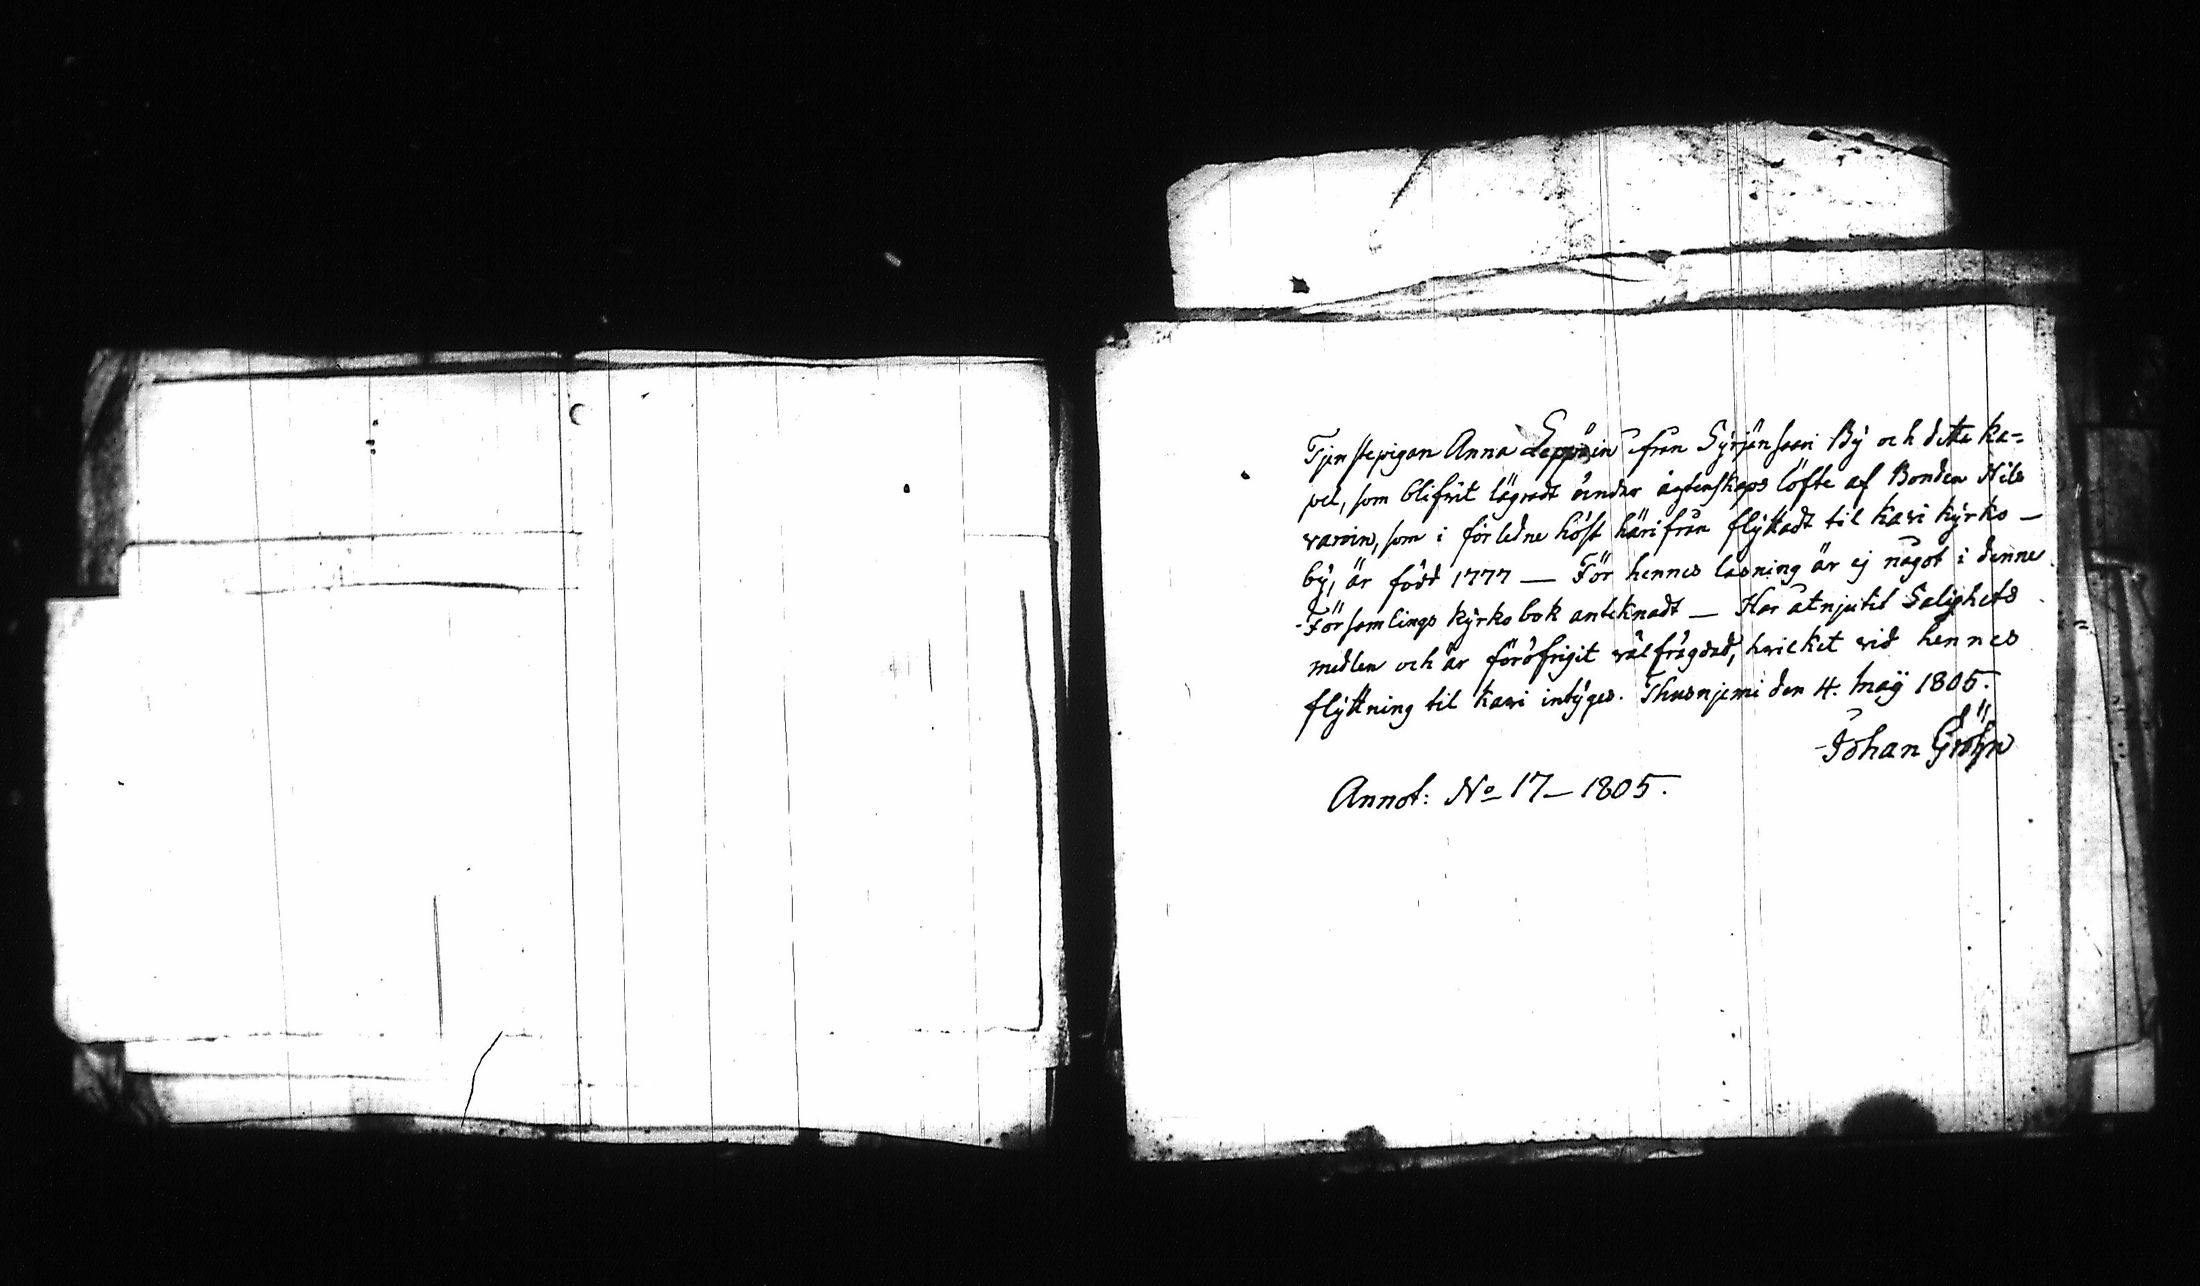 Tjenstepigan Anna Leppäin från Syrjänsaari By och detta ka=
pel, som blifvit lägradt under ägtenskaps löfte af Bonden Nils
varoin, som i förledne höst härifrån flyttadt til Kavi kyrko –
by, är född 1777 — För hennes läsning är ej något i denne
Församlings kyrkobok anteknadt — Har åtnjutit Salighets
medlen och är föröfrigit välfrägdad, hvilket vid hennes
flyttning til Kavi intyges. Thusnjemi den 4. Maÿ 1805.
Johan Gröhn
Annot: No 17 – 1805.